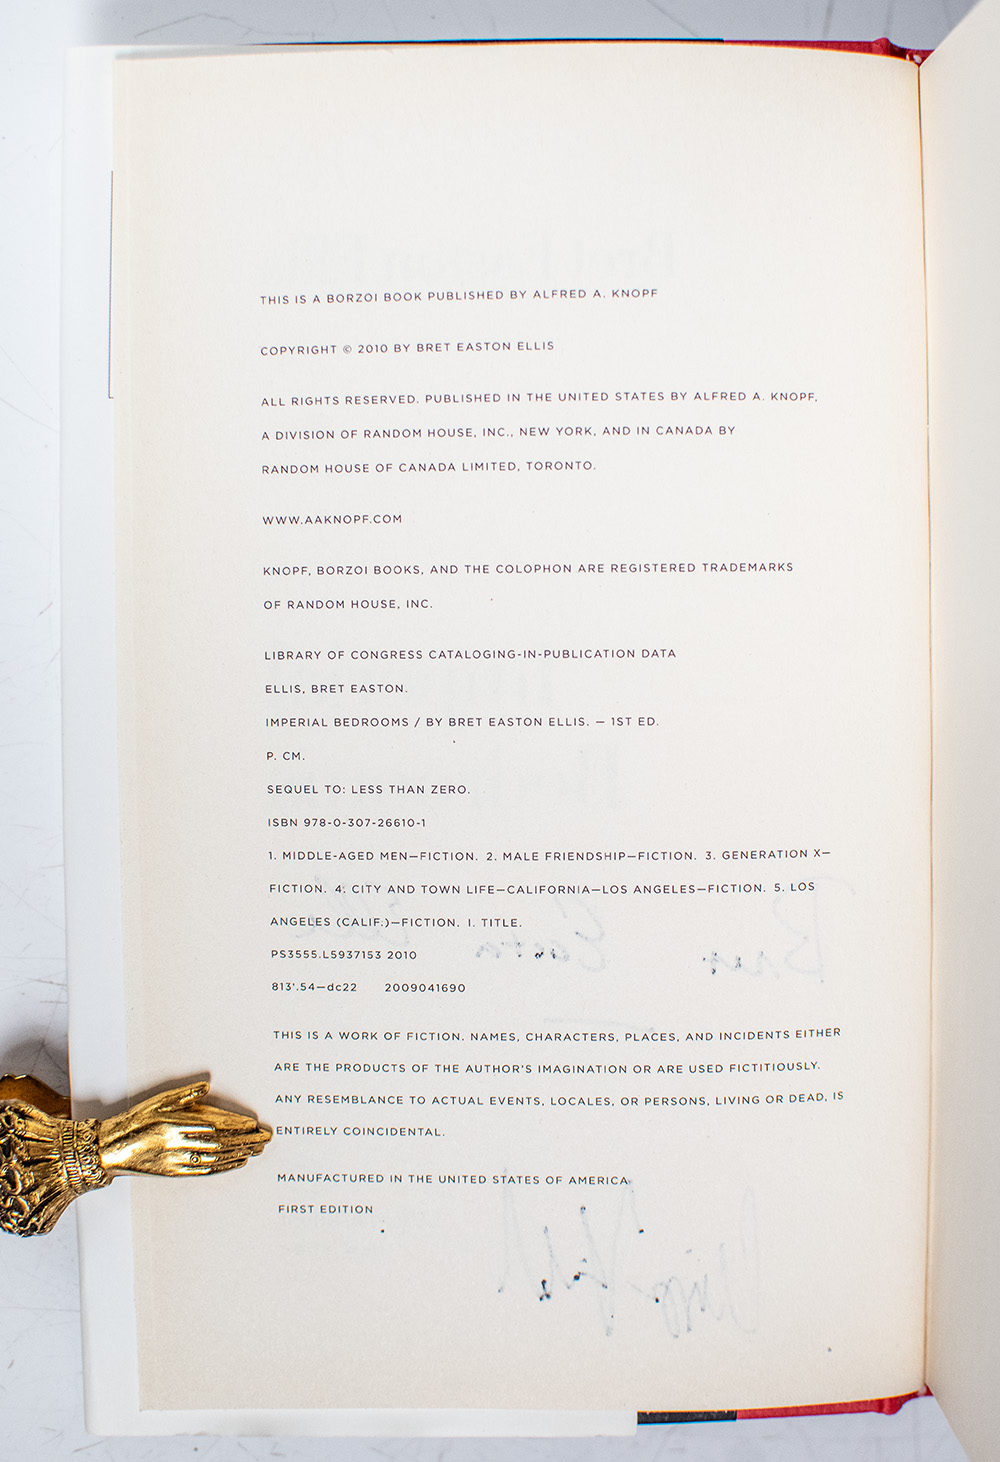 THIS IS A BORZOI BOOK PUBLISHED BY ALFRED A. KNOPF
COPYRIGHT © 2010 BY BRET EASTON ELLIS
ALL RIGHTS RESERVED. PUBLISHED IN THE UNITED STATES BY ALFRED A. KNOPF,
A DIVISION OF RANDOM HOUSE, INC., NEW YORK, AND IN CANADA BY
RANDOM HOUSE OF CANADA LIMITED, TORONTO.
WWW.AAKNOPF.COM
KNOPF, BORZOI BOOKS, AND THE COLOPHON ARE REGISTERED TRADEMARKS
OF RANDOM HOUSE, INC.
LIBRARY OF CONGRESS CATALOGING-IN-PUBLICATION DATA
ELLIS, BRET EASTON.
IMPERIAL BEDROOMS / BY BRET EASTON ELLIS. — 1ST ED.
P. CM.
SEQUEL TO: LESS THAN ZERO.
ISBN 978-0-307-26610-1
1. MIDDLE-AGED MEN—FICTION. 2. MALE FRIENDSHIP—FICTION. 3. GENERATION X—
FICTION. 4. CITY AND TOWN LIFE—CALIFORNIA—LOS ANGELES—FICTION. 5. LOS
ANGELES (CALIF.)—FICTION. I. TITLE.
PS3555.L5937153 2010
813'.54—dc22 2009041690
THIS IS A WORK OF FICTION. NAMES, CHARACTERS, PLACES, AND INCIDENTS EITHER
ARE THE PRODUCTS OF THE AUTHOR'S IMAGINATION OR ARE USED FICTITIOUSLY.
ANY RESEMBLANCE TO ACTUAL EVENTS, LOCALES, OR PERSONS, LIVING OR DEAD, IS
ENTIRELY COINCIDENTAL.
MANUFACTURED IN THE UNITED STATES OF AMERICA
FIRST EDITION